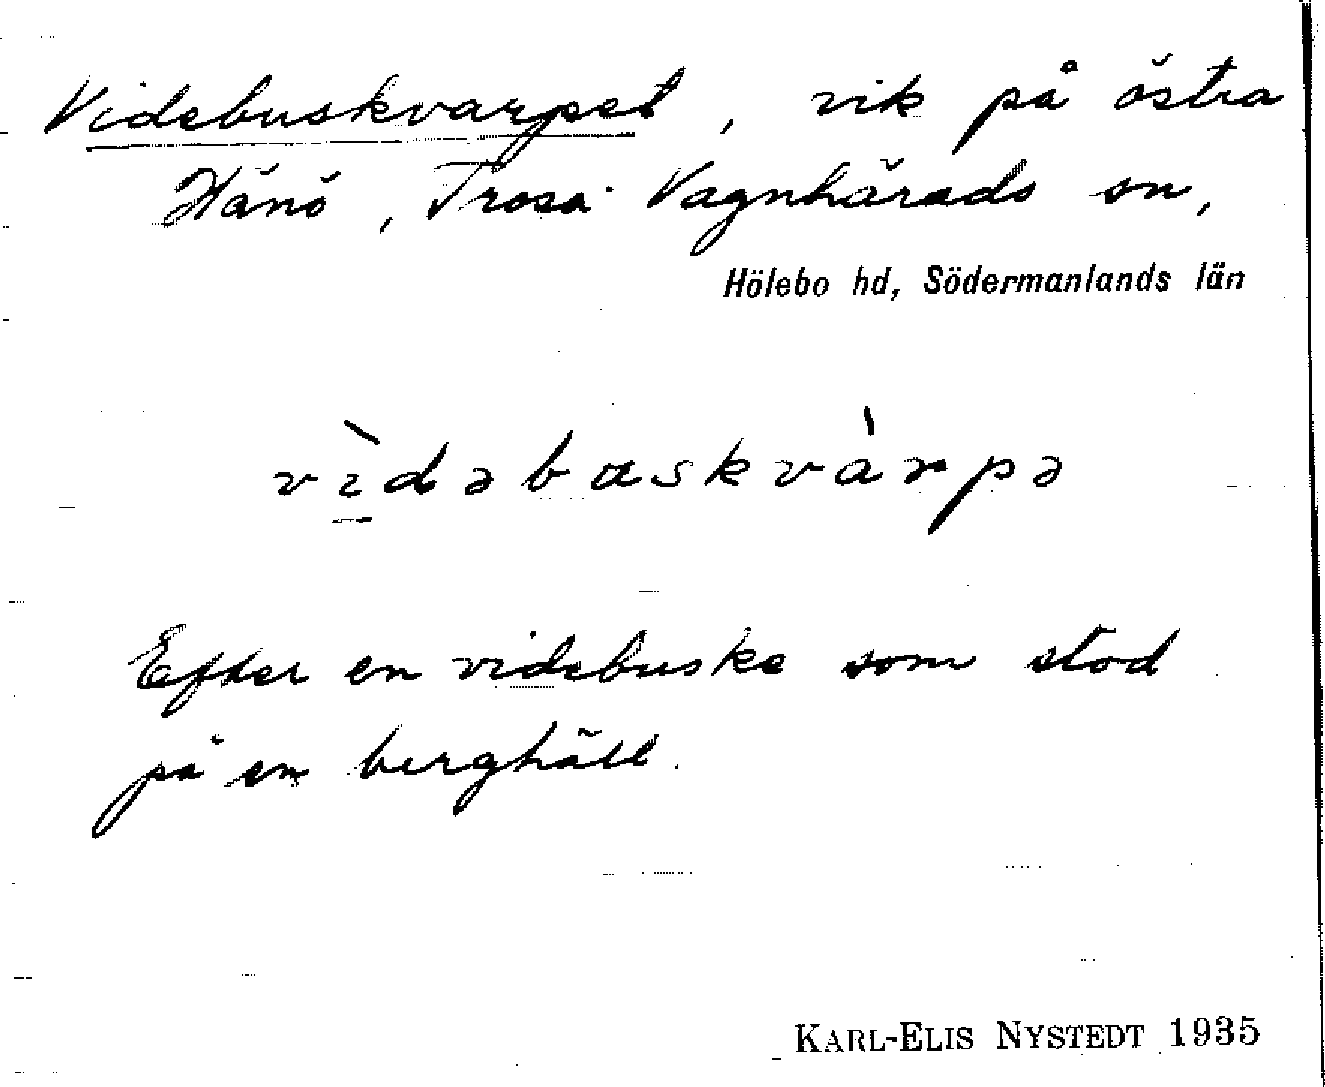 Videbuskvarpet, vik på östra
Hänö, Trosa-Vagnhärads sn,
Hölebo hd, Södermanlands län
vìdəbɷskvàrpə
Efter en videbuske som stod
på en berghäll.
KARL-ELIS NYSTEDT 1935